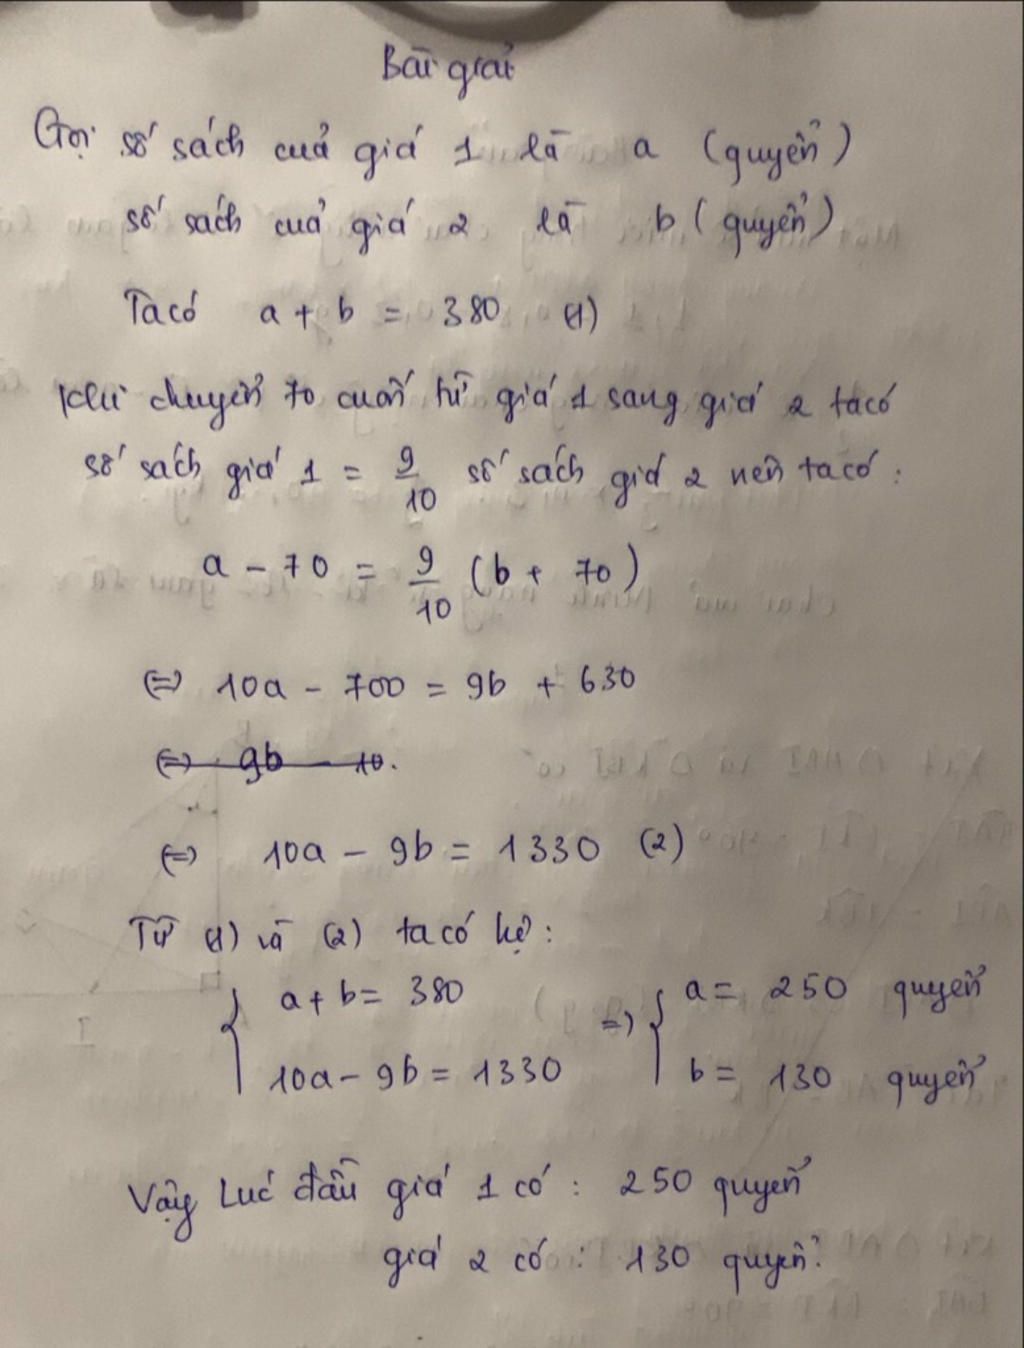 Bài giải
Gọi số sách của giá 1 là a (quyển)
số sách của giá 2 là b (quyển)
Ta có a + b = 380 (1)
Khi chuyển 70 cuốn từ giá 1 sang giá 2 ta có
số sách giá 1 = 9/10 số sách giá 2 nên ta có :
a - 70 = 9/10 (b + 70)
⇔ 10a - 700 = 9b + 630
⇔ 9b - 10.
⇔ 10a - 9b = 1330 (2)
Từ (1) và (2) ta có hệ :
{ a + b = 380 => { a = 250 quyển
10a - 9b = 1330 b = 130 quyển
Vậy Lúc đầu giá 1 có : 250 quyển
giá 2 có : 130 quyển.